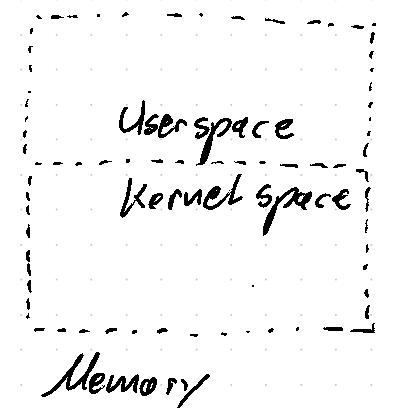 Userspace
Kernel space
Memory